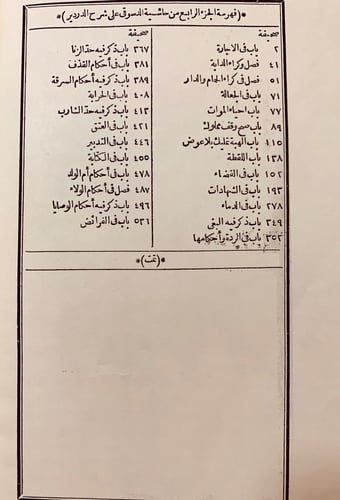 *(فهرسة الجزء الرابع من حاشية الدسوقى على شرح الدردير)*
صحيفة
٢ باب فى الاجارة
٤١ فصل وكراء الدابة
٥١ فصل فى كراء الحمام والدار
٧١ باب فى الجعالة
٧٧ باب احياء الموات
٨٩ باب صح وقف مملوك
١١٥ باب الهبة تمليك بلا عوض
١٣٨ باب اللقطة
١٥٢ باب فى القضاء
١٩٣ باب فى الشهادات
٢٧٨ باب فى الدماء
٣٤٩ باب ذكر فيه البغى
٣٥٢ باب فى الردة وأحكامها
صحيفة
٣٦٧ باب ذكر فيه حد الزنا
٣٨١ باب فى أحكام القذف
٣٨٩ باب ذكر فيه أحكام السرقة
٤٠٨ باب فى الحرابة
٤١٣ باب ذكر فيه حد الشارب
٤٢١ باب فى العتق
٤٤٦ باب فى التدبير
٤٥٥ باب فى الكتابة
٤٧٨ باب فى أحكام أم الولد
٤٨٧ فصل فى أحكام الولاء
٤٩٦ باب ذكر فيه أحكام الوصايا
٥٣٦ باب فى الفرائض
*(تمت)*